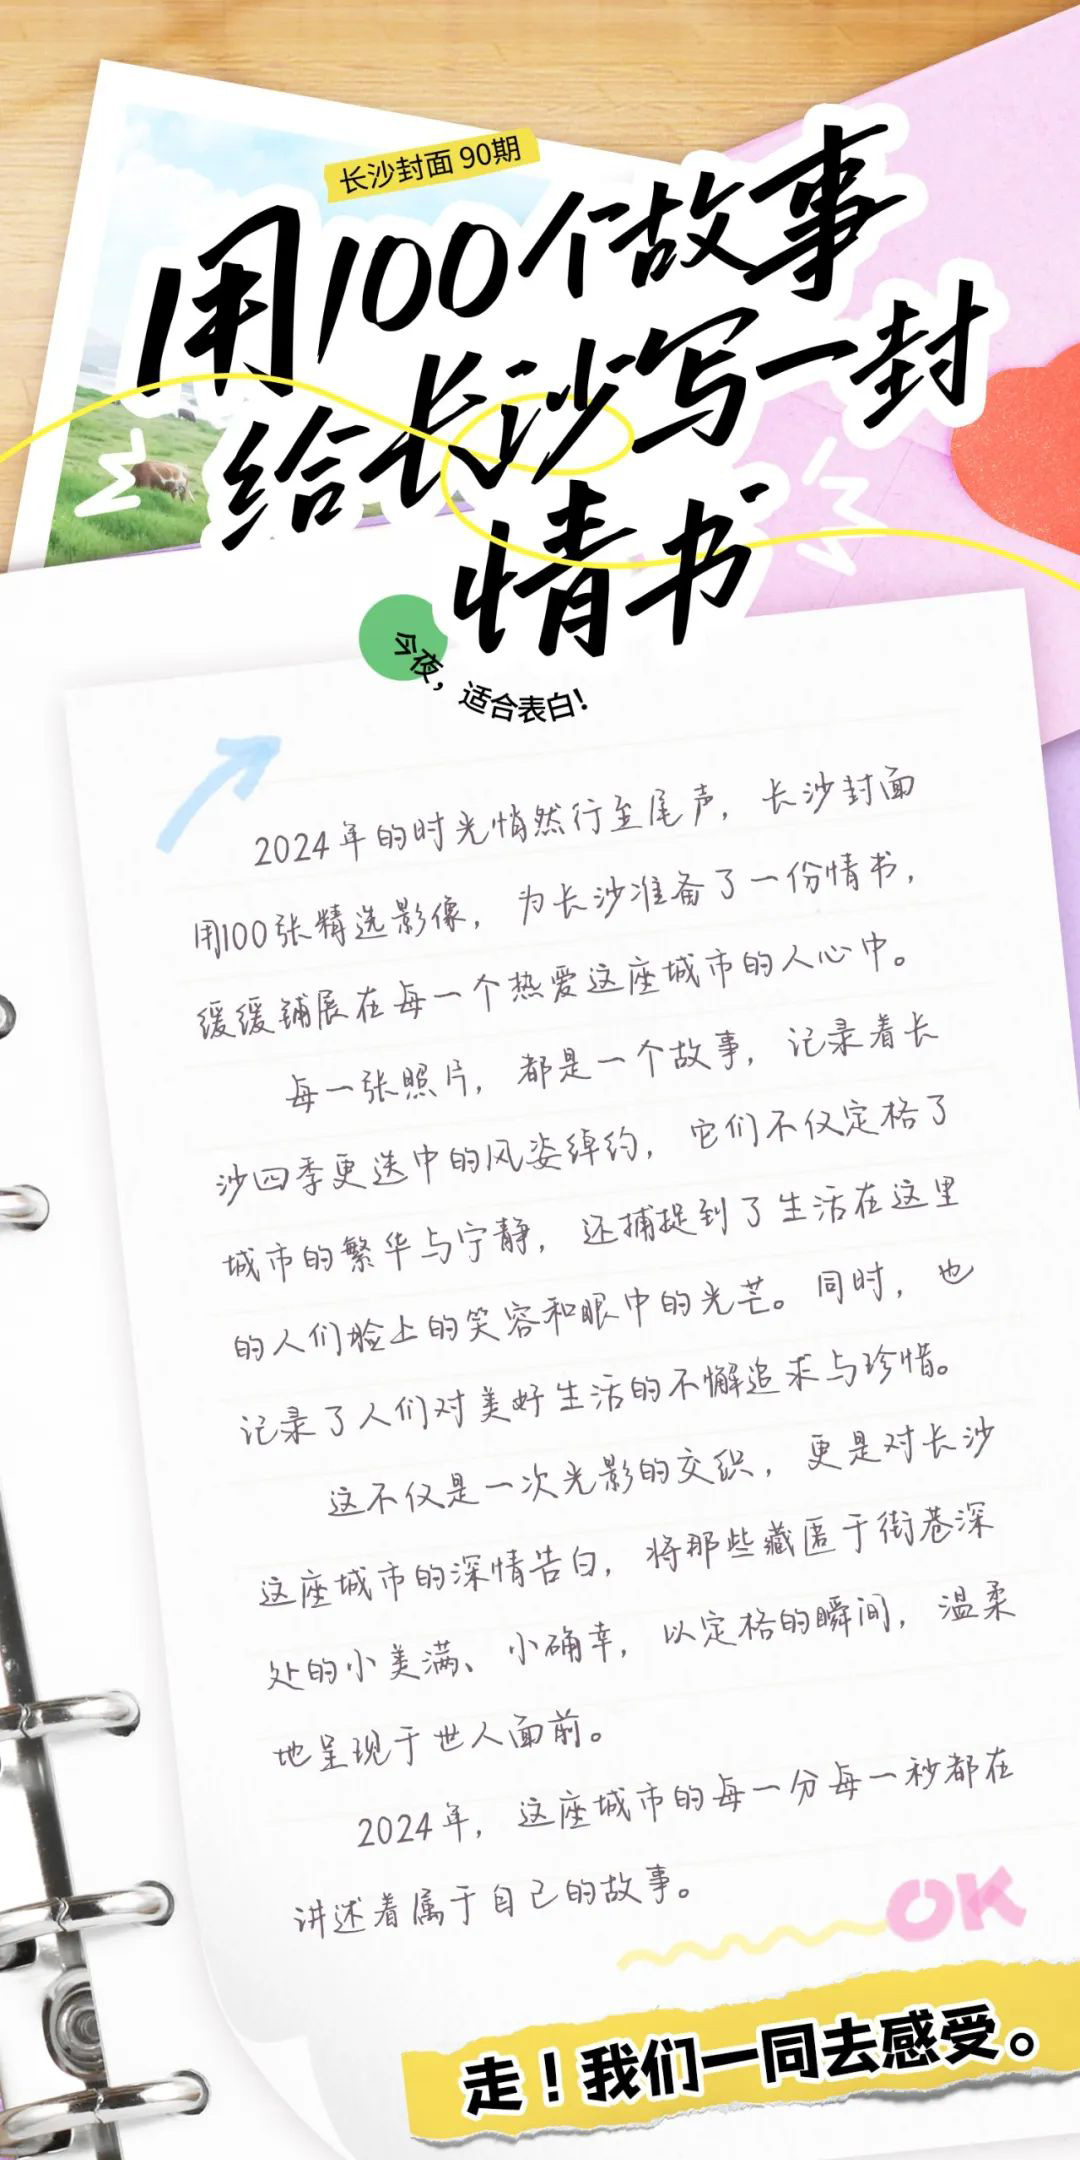 长沙封面 90期
用100个故事
给长沙写一封
情书
今夜，适合表白!
2024年的时光悄然行至尾声，长沙封面
用100张精选影像，为长沙准备了一份情书，
缓缓铺展在每一个热爱这座城市的人心中。
每一张照片，都是一个故事，记录着长
沙四季更迭中的风姿绰约，它们不仅定格了
城市的繁华与宁静，还捕捉到了生活在这里
的人们脸上的笑容和眼中的光芒。同时，也
记录了人们对美好生活的不懈追求与珍惜。
这不仅是一次光影的交织，更是对长沙
这座城市的深情告白，将那些藏匿于街巷深
处的小美满、小确幸，以定格的瞬间，温柔
地呈现于世人面前。
2024年，这座城市的每一分每一秒都在
讲述着属于自己的故事。
OK
走！我们一同去感受。